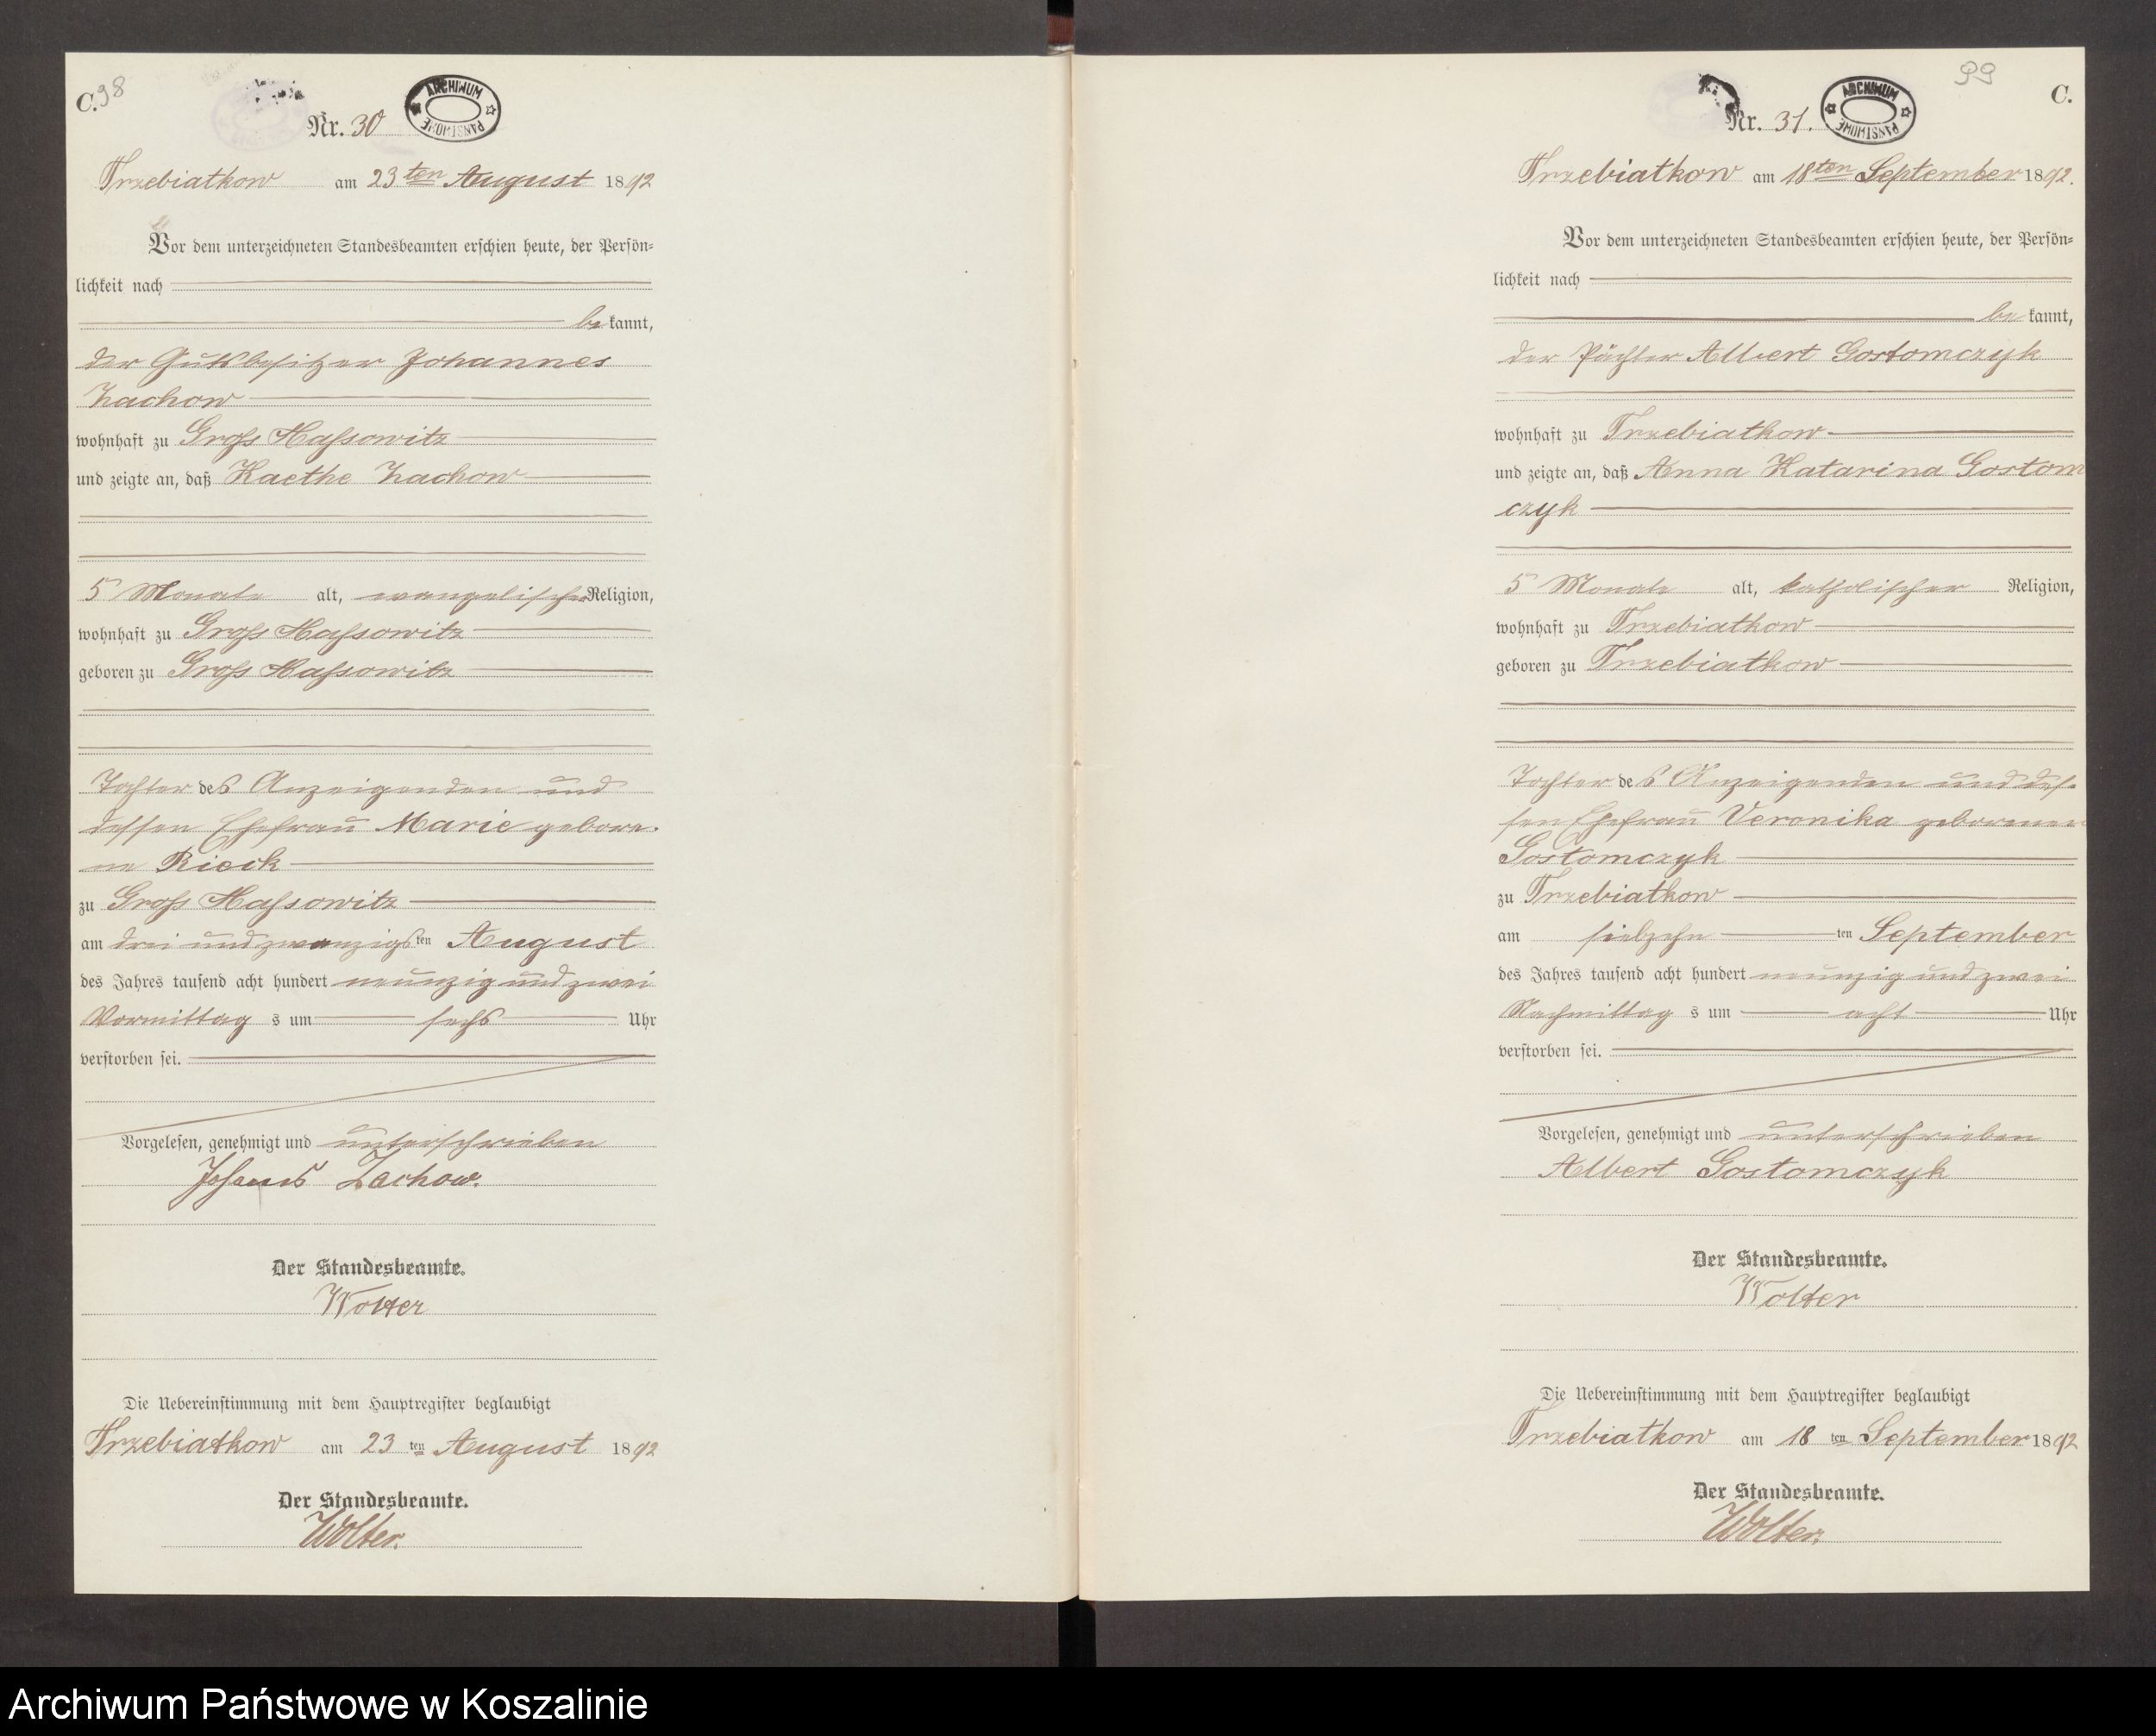 C. 98
Nr. 30
ARCHIWUM PAŃSTWOWE
Trzebiatkow am 23ten August 1892
Vor dem unterzeichneten Standesbeamten erschien heute, der Persön=
lichkeit nach
be kannt,
der Gutsbesitzer Johannes
Zachow
wohnhaft zu Gross Massowitz
und zeigte an, daß Kaethe Zachow
5 Monate alt, evangelischer Religion,
wohnhaft zu Gross Massowitz
geboren zu Gross Massowitz
Tochter des Anzeigenden und
dessen Ehefrau Marie gebore-
ne Rieck
zu Gross Massowitz
am drei und zwanzigsten August
des Jahres tausend acht hundert neunzig und zwei
Vormittag s um sechs Uhr
verstorben sei.
Vorgelesen, genehmigt und unterschrieben
Johannes Zachow.
Der Standesbeamte.
Wolter
Die Uebereinstimmung mit dem Hauptregister beglaubigt
Trzebiatkow am 23 ten August 1892
Der Standesbeamte.
Wolter.
99
C.
Nr. 31.
ARCHIWUM PAŃSTWOWE
Trzebiatkow am 18ten September 1892.
Vor dem unterzeichneten Standesbeamten erschien heute, der Persön=
lichkeit nach
be kannt,
der Pächter Albert Gostomczyk
wohnhaft zu Trzebiatkow
und zeigte an, daß Anna Katarina Gostom
czyk
5 Monate alt, katholischer Religion,
wohnhaft zu Trzebiatkow
geboren zu Trzebiatkow
Tochter des Anzeigenden und des-
sen Ehefrau Veronika geborenen
Gostomczyk
zu Trzebiatkow
am siebzehn ten September
des Jahres tausend acht hundert neunzig und zwei
Nachmittag s um acht Uhr
verstorben sei.
Vorgelesen, genehmigt und unterschrieben
Albert Gostomczyk
Der Standesbeamte.
Wolter
Die Uebereinstimmung mit dem Hauptregister beglaubigt
Trzebiatkow am 18 ten September 1892
Der Standesbeamte.
Wolter.
Archiwum Państwowe w Koszalinie